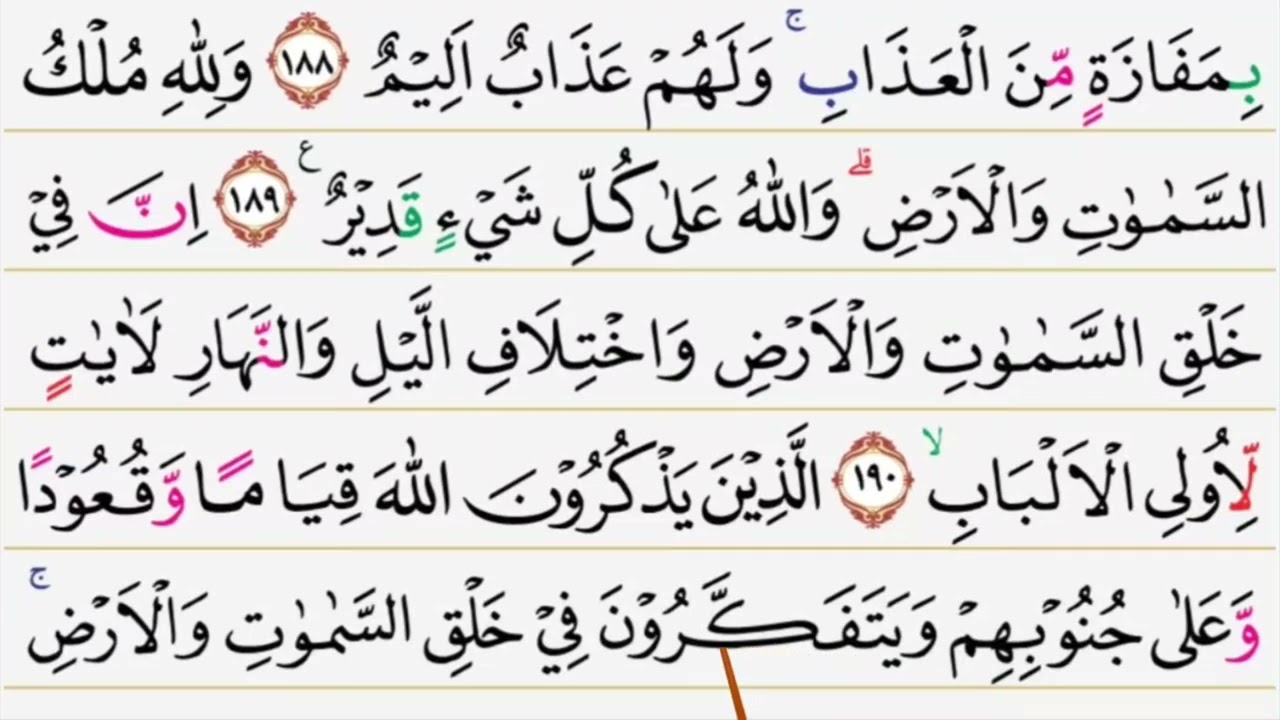 بِمَفَازَةٍ مِّنَ الْعَذَابِ ۚ وَلَهُمْ عَذَابٌ اَلِيْمٌ ١٨٨ وَلِلّٰهِ مُلْكُ
السَّمٰوٰتِ وَالْاَرْضِ ۗ وَاللّٰهُ عَلٰى كُلِّ شَيْءٍ قَدِيْرٌ ع ١٨٩ اِنَّ فِيْ
خَلْقِ السَّمٰوٰتِ وَالْاَرْضِ وَاخْتِلَافِ الَّيْلِ وَالنَّهَارِ لَاٰيٰتٍ
لِّاُولِى الْاَلْبَابِ ۙ ١٩٠ الَّذِيْنَ يَذْكُرُوْنَ اللّٰهَ قِيَامًا وَّقُعُوْدًا
وَّعَلٰى جُنُوْبِهِمْ وَيَتَفَكَّرُوْنَ فِيْ خَلْقِ السَّمٰوٰتِ وَالْاَرْضِ ۚ